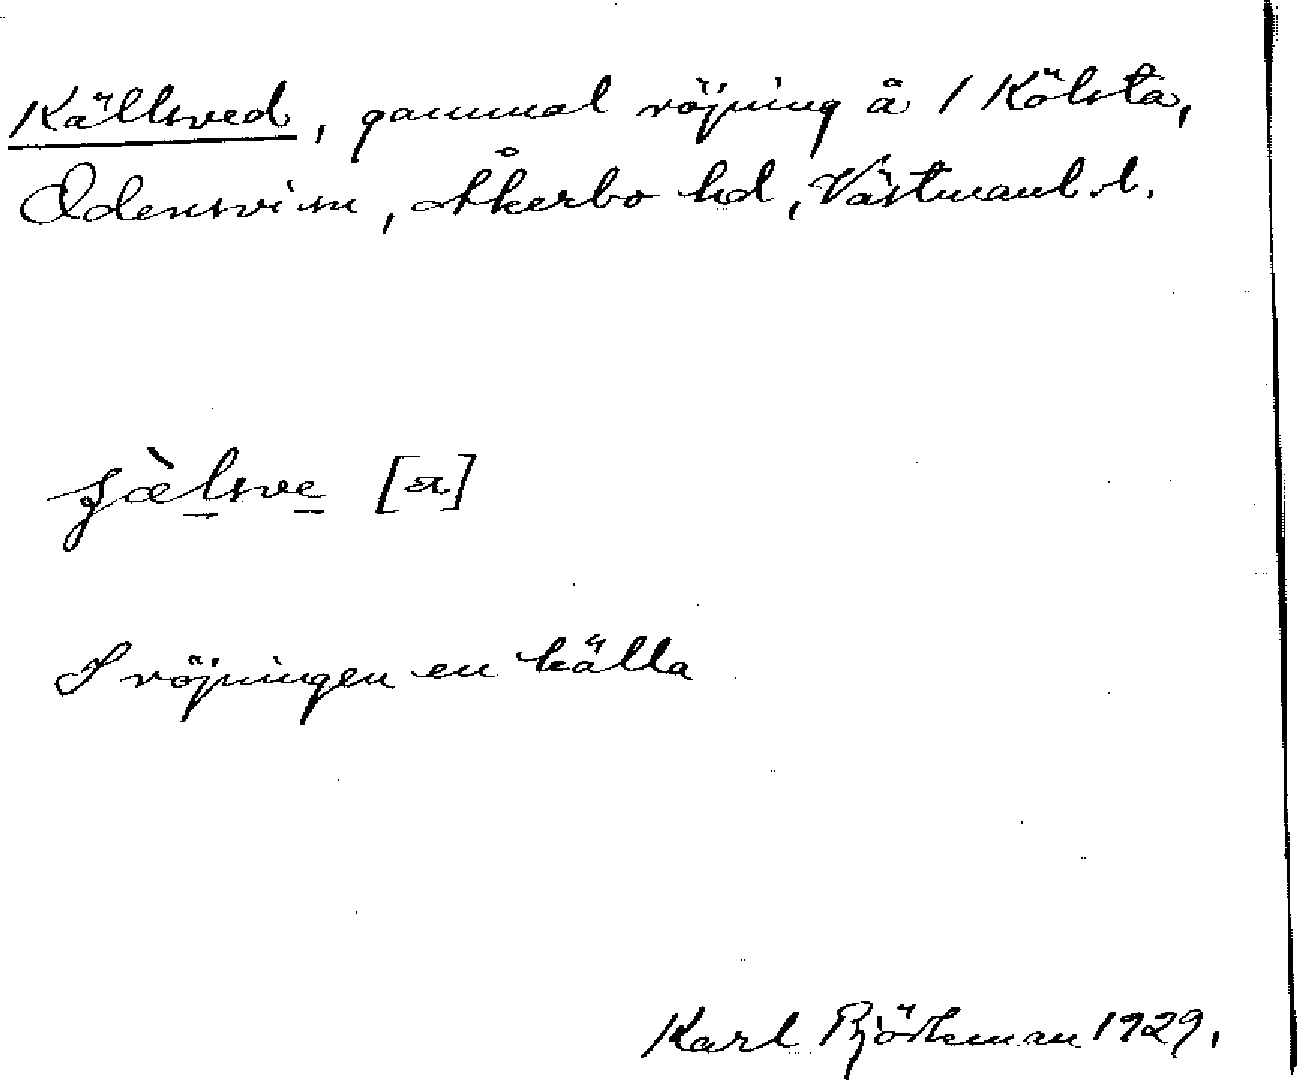 Källsved, gammal röjning å / Kölsta,
Odensvi sn, Åkerbo hd, Västmanl. l.
[a]
I röjningen en källa
Karl Björkman 1929.